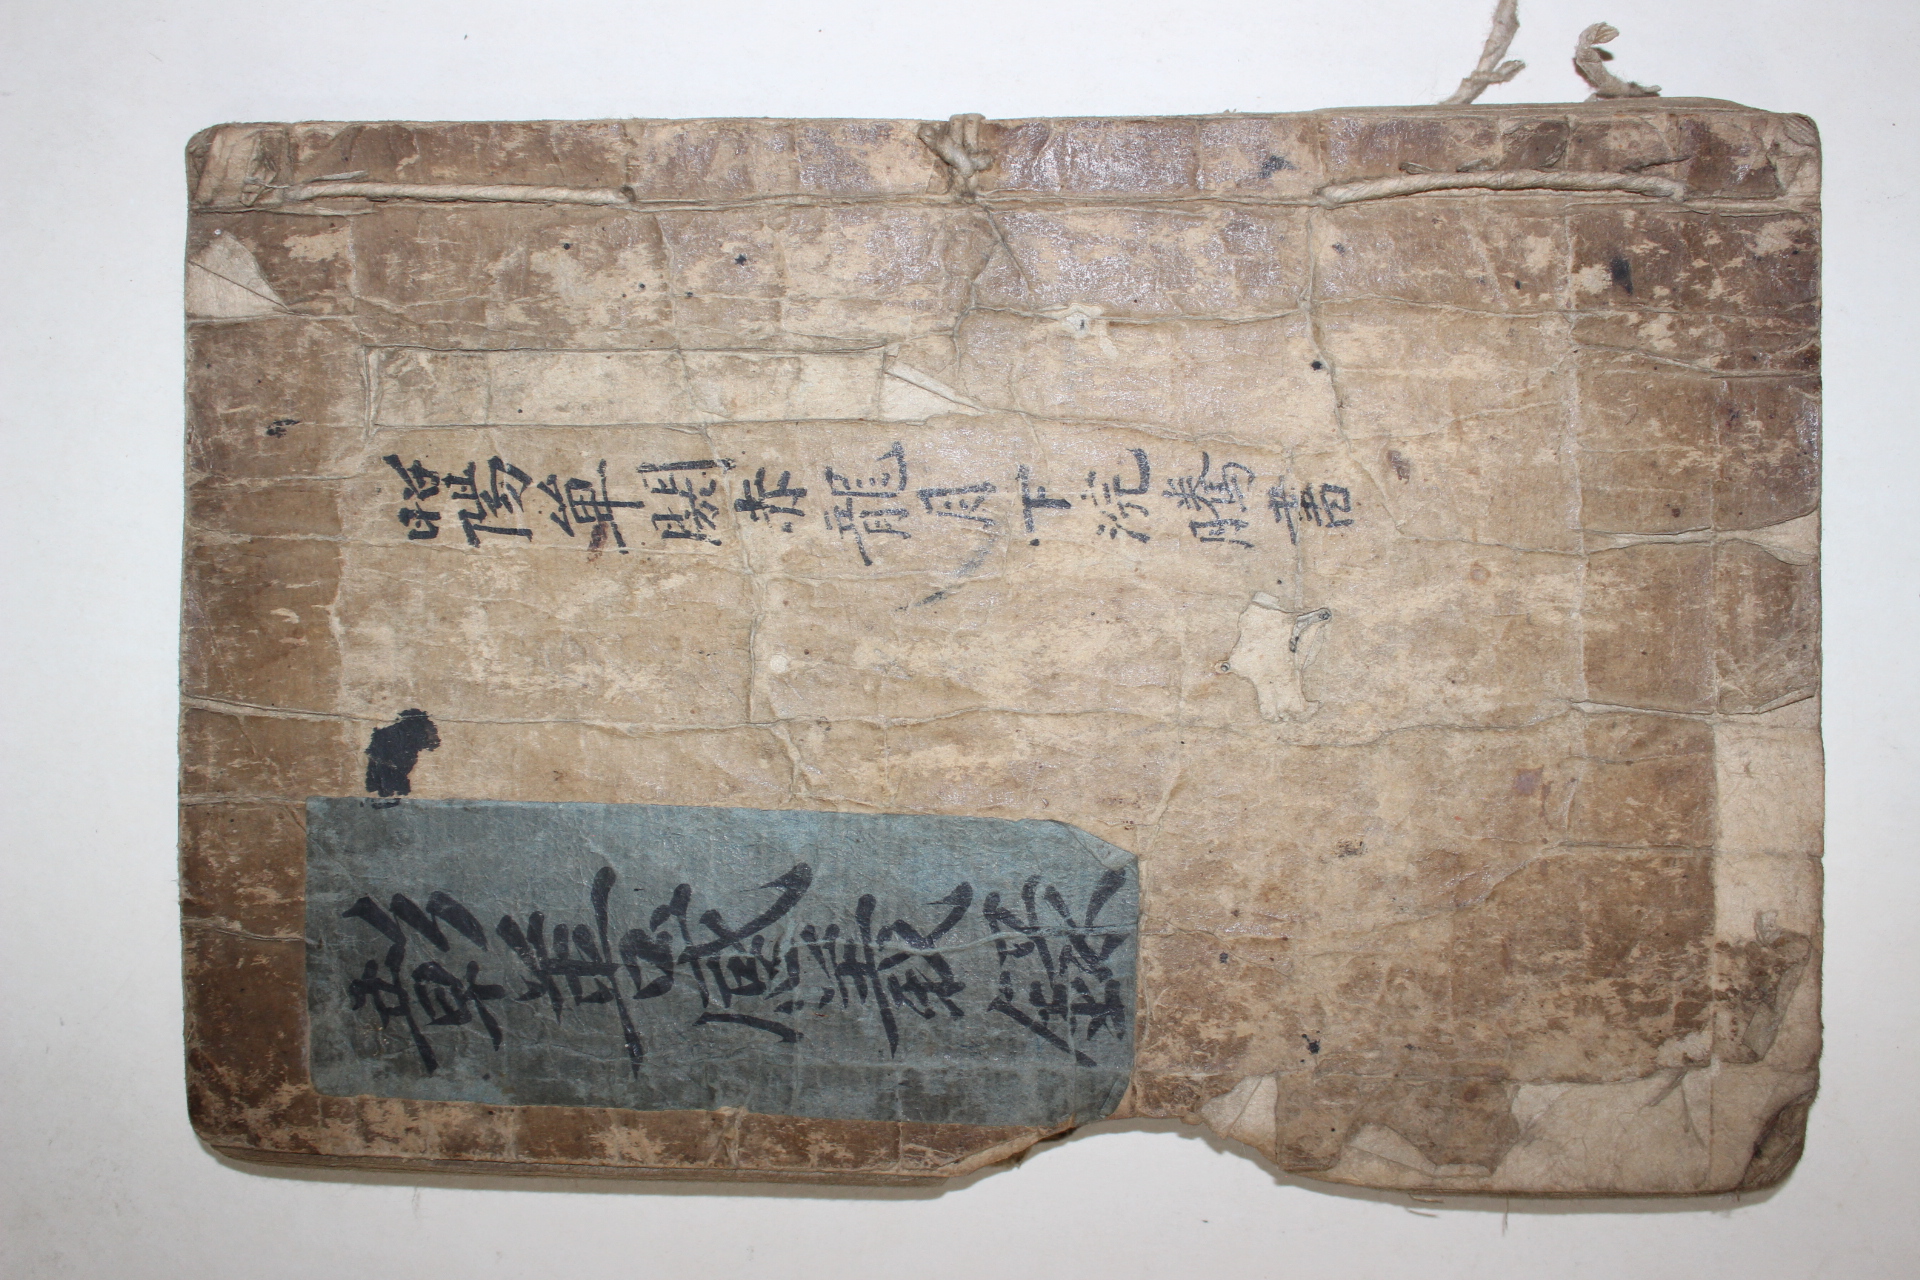 昭陽單閼赤龍月下浣騰書
彰善感義錄